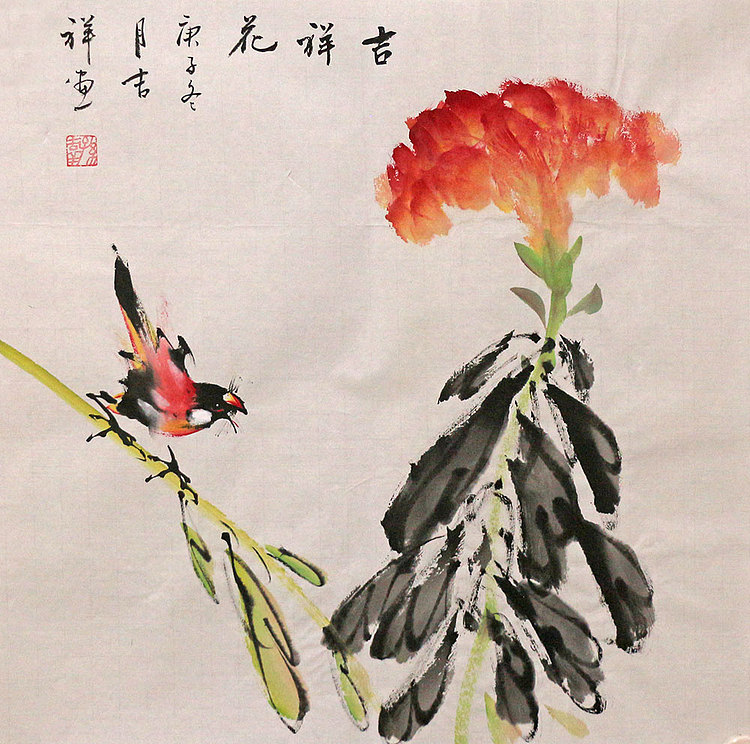 吉祥花
庚子冬
月吉
祥画